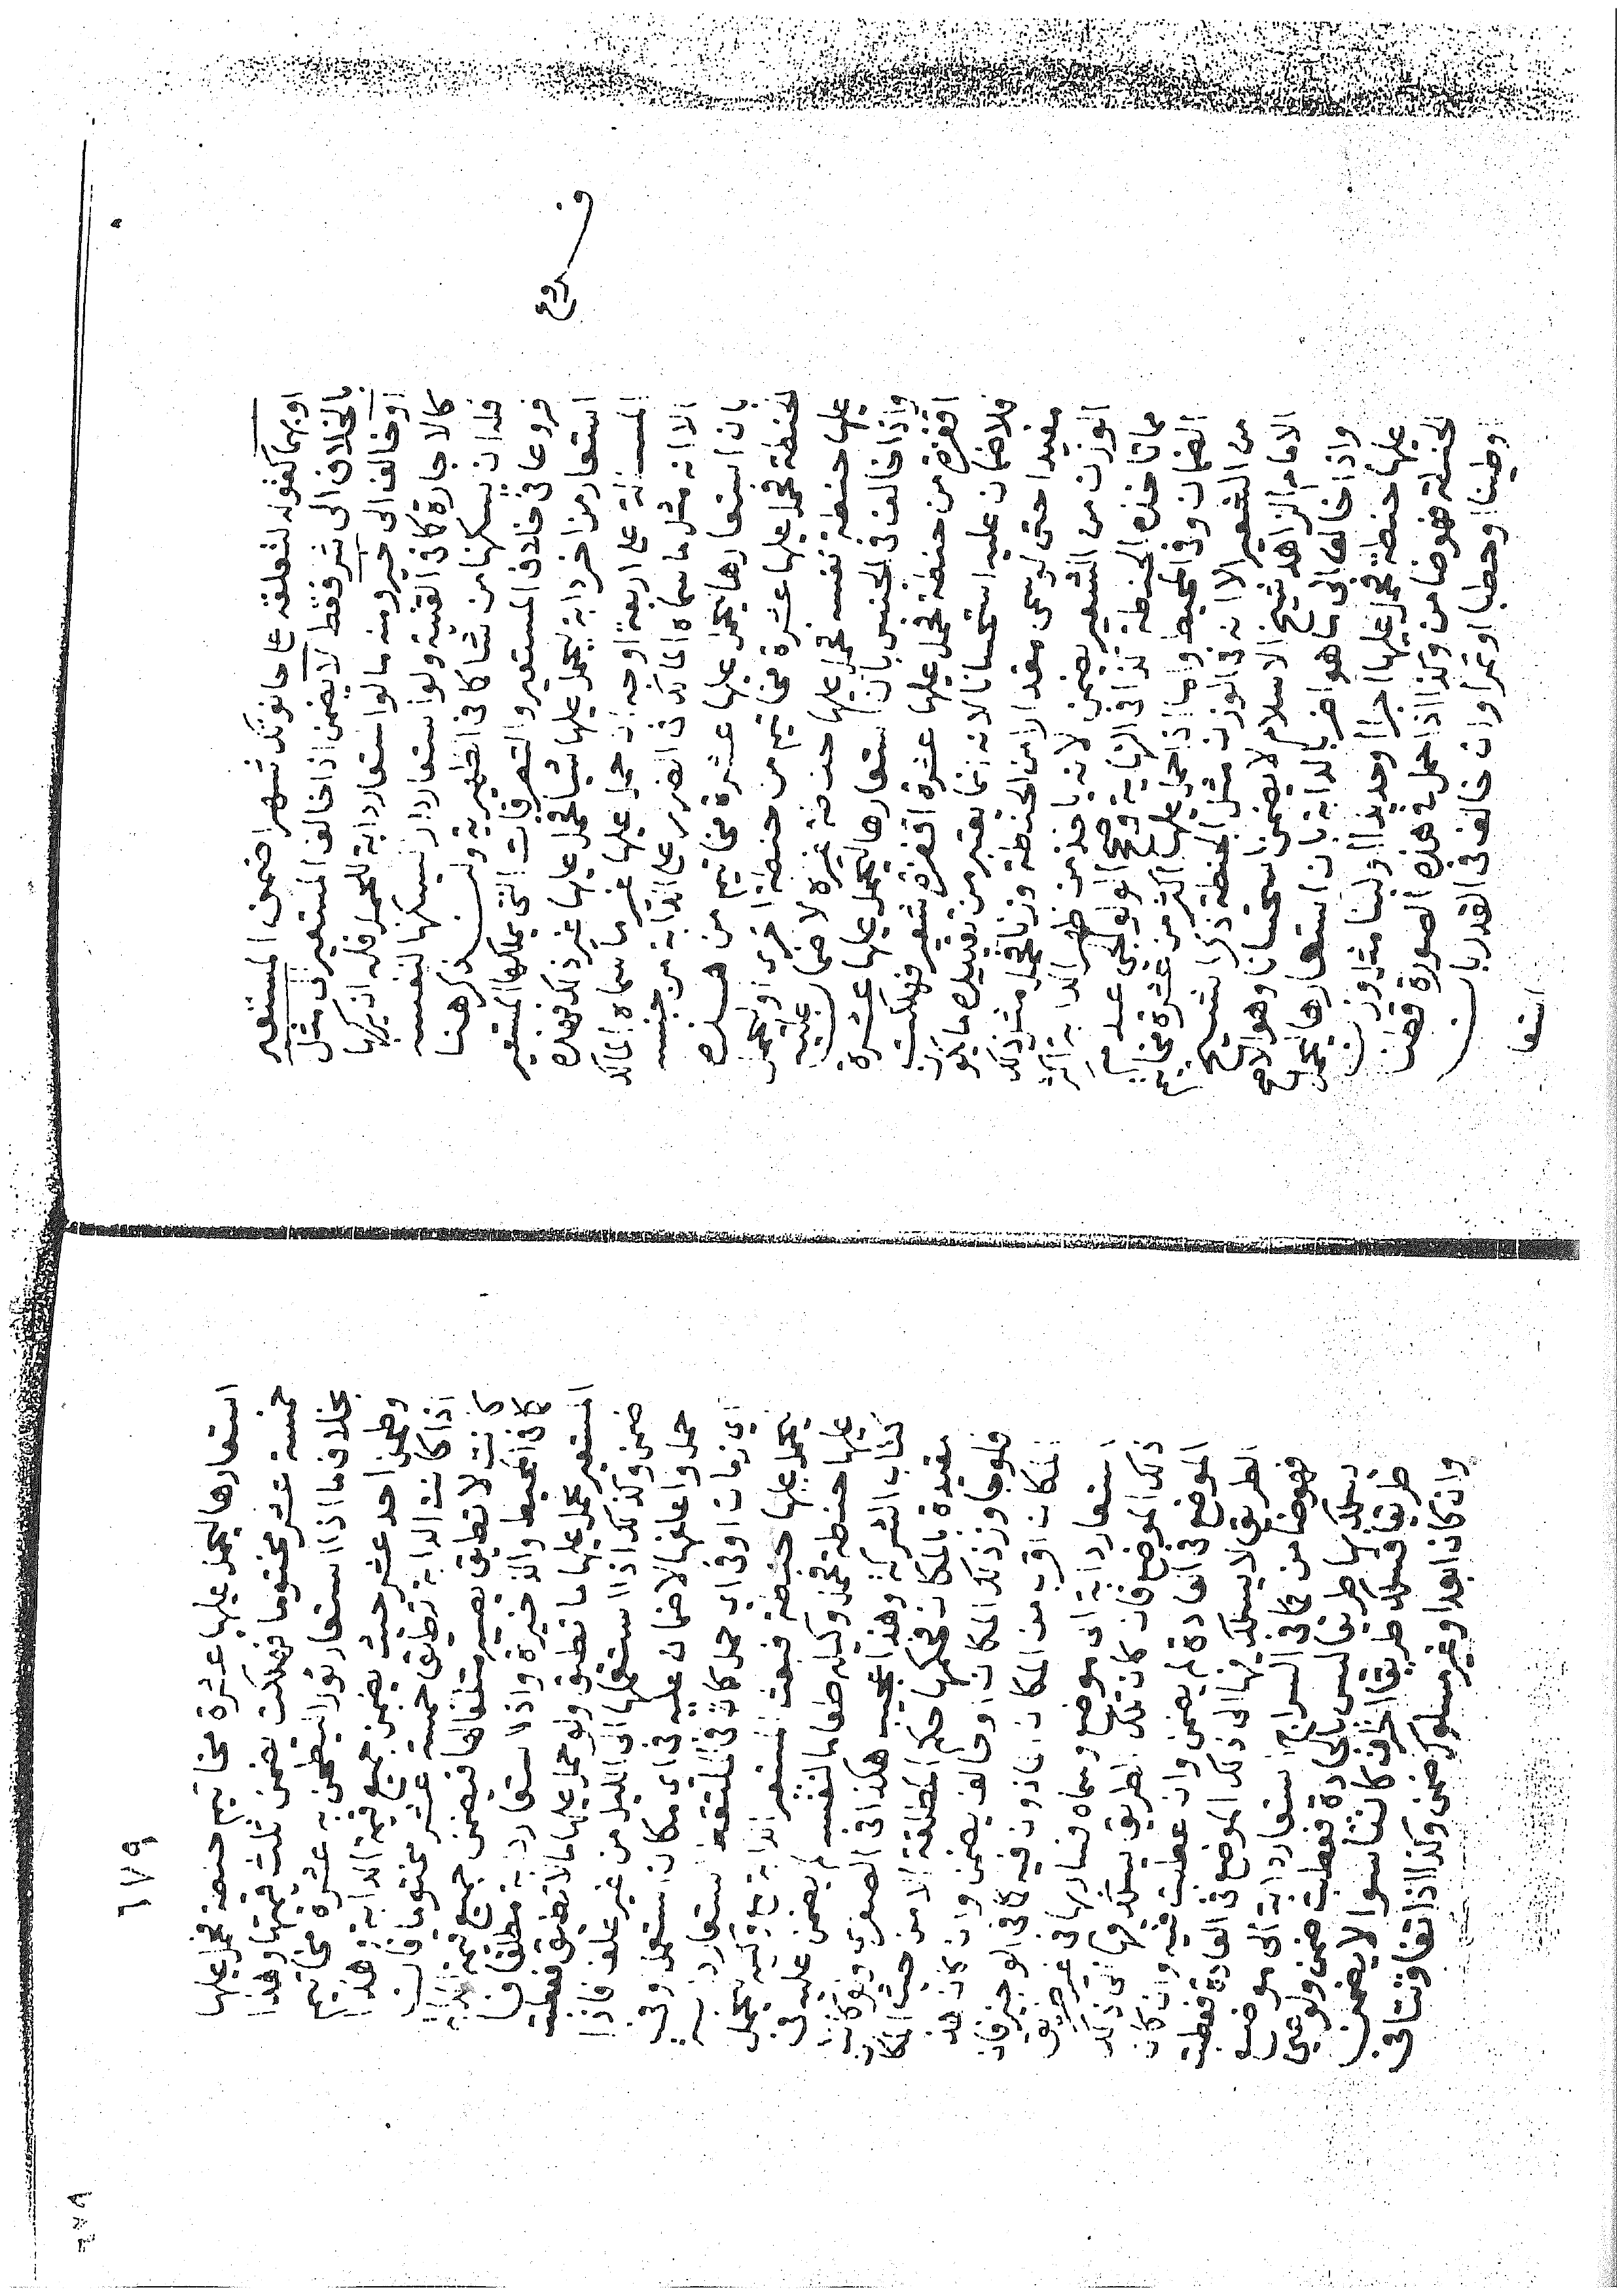 فروع
او بهما كقوله لتعلفه على حانوتك شهرا ضمن المستعير
بالخلاف الى شر فقط لا يضمن اذا خالف المستعير الى مثل
او خالف الى خير ومنه ما لو استعار دابة للحمل فله ان يركبها
كالاجارة كما في القنية ولو استعار دار ليسكنها لنفسه
فله ان يسكنها من شا كما في الظهيرية ولنذكر هنا
فروعا في خلاف المستعير والتصرفات التي يملكها المستعير
استعار من اخر دابة ليحمل عليها شيا فحمل عليها غير ذلك فهذه
المسالة على اربعة اوجه ان حمل عليها غير ما سماه المالك
الا انه مثل ما سماه المالك في الضرر على الدابة من جنسه
بان استعارها ليحمل عليها عشرة مخاتيم من هذه
الحنطة فحمل عليها عشرة مخاتيم من حنطة اخرى او ليحمل
عليها حنطة نفسه فحمل عليها حنطة غيره لا ضمان عليه
واذا خالف في الجنس بان استعارها ليحمل عليها عشرة
اقفزة من حنطة فحمل عليها عشرة اقفزة شعير فهلكت
فلا ضمان عليه استحسانا لانه انما يعتبر من تقييده ما يكون
مفيدا حتى لو سمى مقدارا من الحنطة وزنا فحمل مثل ذلك
الوزن من الشعير يضمن لانه ياخذ من ظهر الدابة اكثر
مما تاخذه الحنطة كذا في النهاية وصحح الولوالجي عدم
الضمان وفي المحيط واما اذا حمل عليها اكثر من عشرة مخاتيم
من الشعير الا انه في الوزن مثل الحنطة ذكر الشيخ
الامام الزاهد شيخ الاسلام لا يضمن استحسانا وهو الاصح
واذا خالف الى ما هو اضر بالدابة بان استعارها ليحمل
عليها حنطة فحمل عليها اجرا او حديدا او لبنا مثل وزن
الحنطة فهو ضامن وكذا اذا حمل في هذه الصورة قطنا
او طينا او حطبا او تمرا وان خالف في القدر بان
استعا
٦٧٩
استعارها ليحمل عليها عشرة مخاتيم حنطة فحمل عليها
خمسة عشر مختوما فهلكت يضمن ثلث قيمتها وهذا
بخلاف ما اذا استعار ثورا ليطحن به عشرة مخاتيم
وطحن احد عشر حيث يضمن جميع قيمة الدابة وهذا
اذا كانت الدابة تطيق خمسة عشر مختوما فان
كانت لا تطيق يصير متلفا لها فيضمن جميع قيمة الدابة
كما في المحيط والذخيرة واذا استعار دابة مطلقا فان
المستعير يحمل عليها ما تطيق ولو حمل عليها ما لا تطيق فعطبت
ضمن وكذلك اذا استعملها الى الليل من غير علف فاذا
حمل واعلفها لا ضمان عليه في اي مكان استعمل وفي
اي زمان وفي اي حمل كان كما في الملتقط استعار دابة
يحمل عليها حنطة فبعث المستعير الدابة مع وكيله ليحمل
عليها حنطة فحمل وكيله طعاما لنفسه لم يضمن عليه في
كتاب الشركة وهذا عجيب هكذا في الصغرى ولو كانت
مقيدة بالمكان فحكمها حكم المطلقة الا من حيث المكان
فلو جاوز ذلك المكان او خالف يضمن وان كان هذا
المكان اقرب من المكان الماذون فيه كما في الوجيز فان
استعار دابة الى موضع وسماه فسار بها في غير طريق
ذلك الموضع فان كان تلك الطريق يسلك فيها الى ذلك
الموضع في العادة لم يضمن وان عطبت فيه وان كان
الطريق لا يسلك فيها الى ذلك الموضع في العادة فعطبت
فهو ضامن كما في السراج استعار دابة الى موضع
يسلك بها طريقا ليس بالجادة فعطبت ضمن ولو عين
طريقا فسلك طريقا اخر ان كانتا سوا لا يضمن
وان كان ابعد او غير مسلوك ضمن وكذا اذا تفاوتتا في
٦٧٩